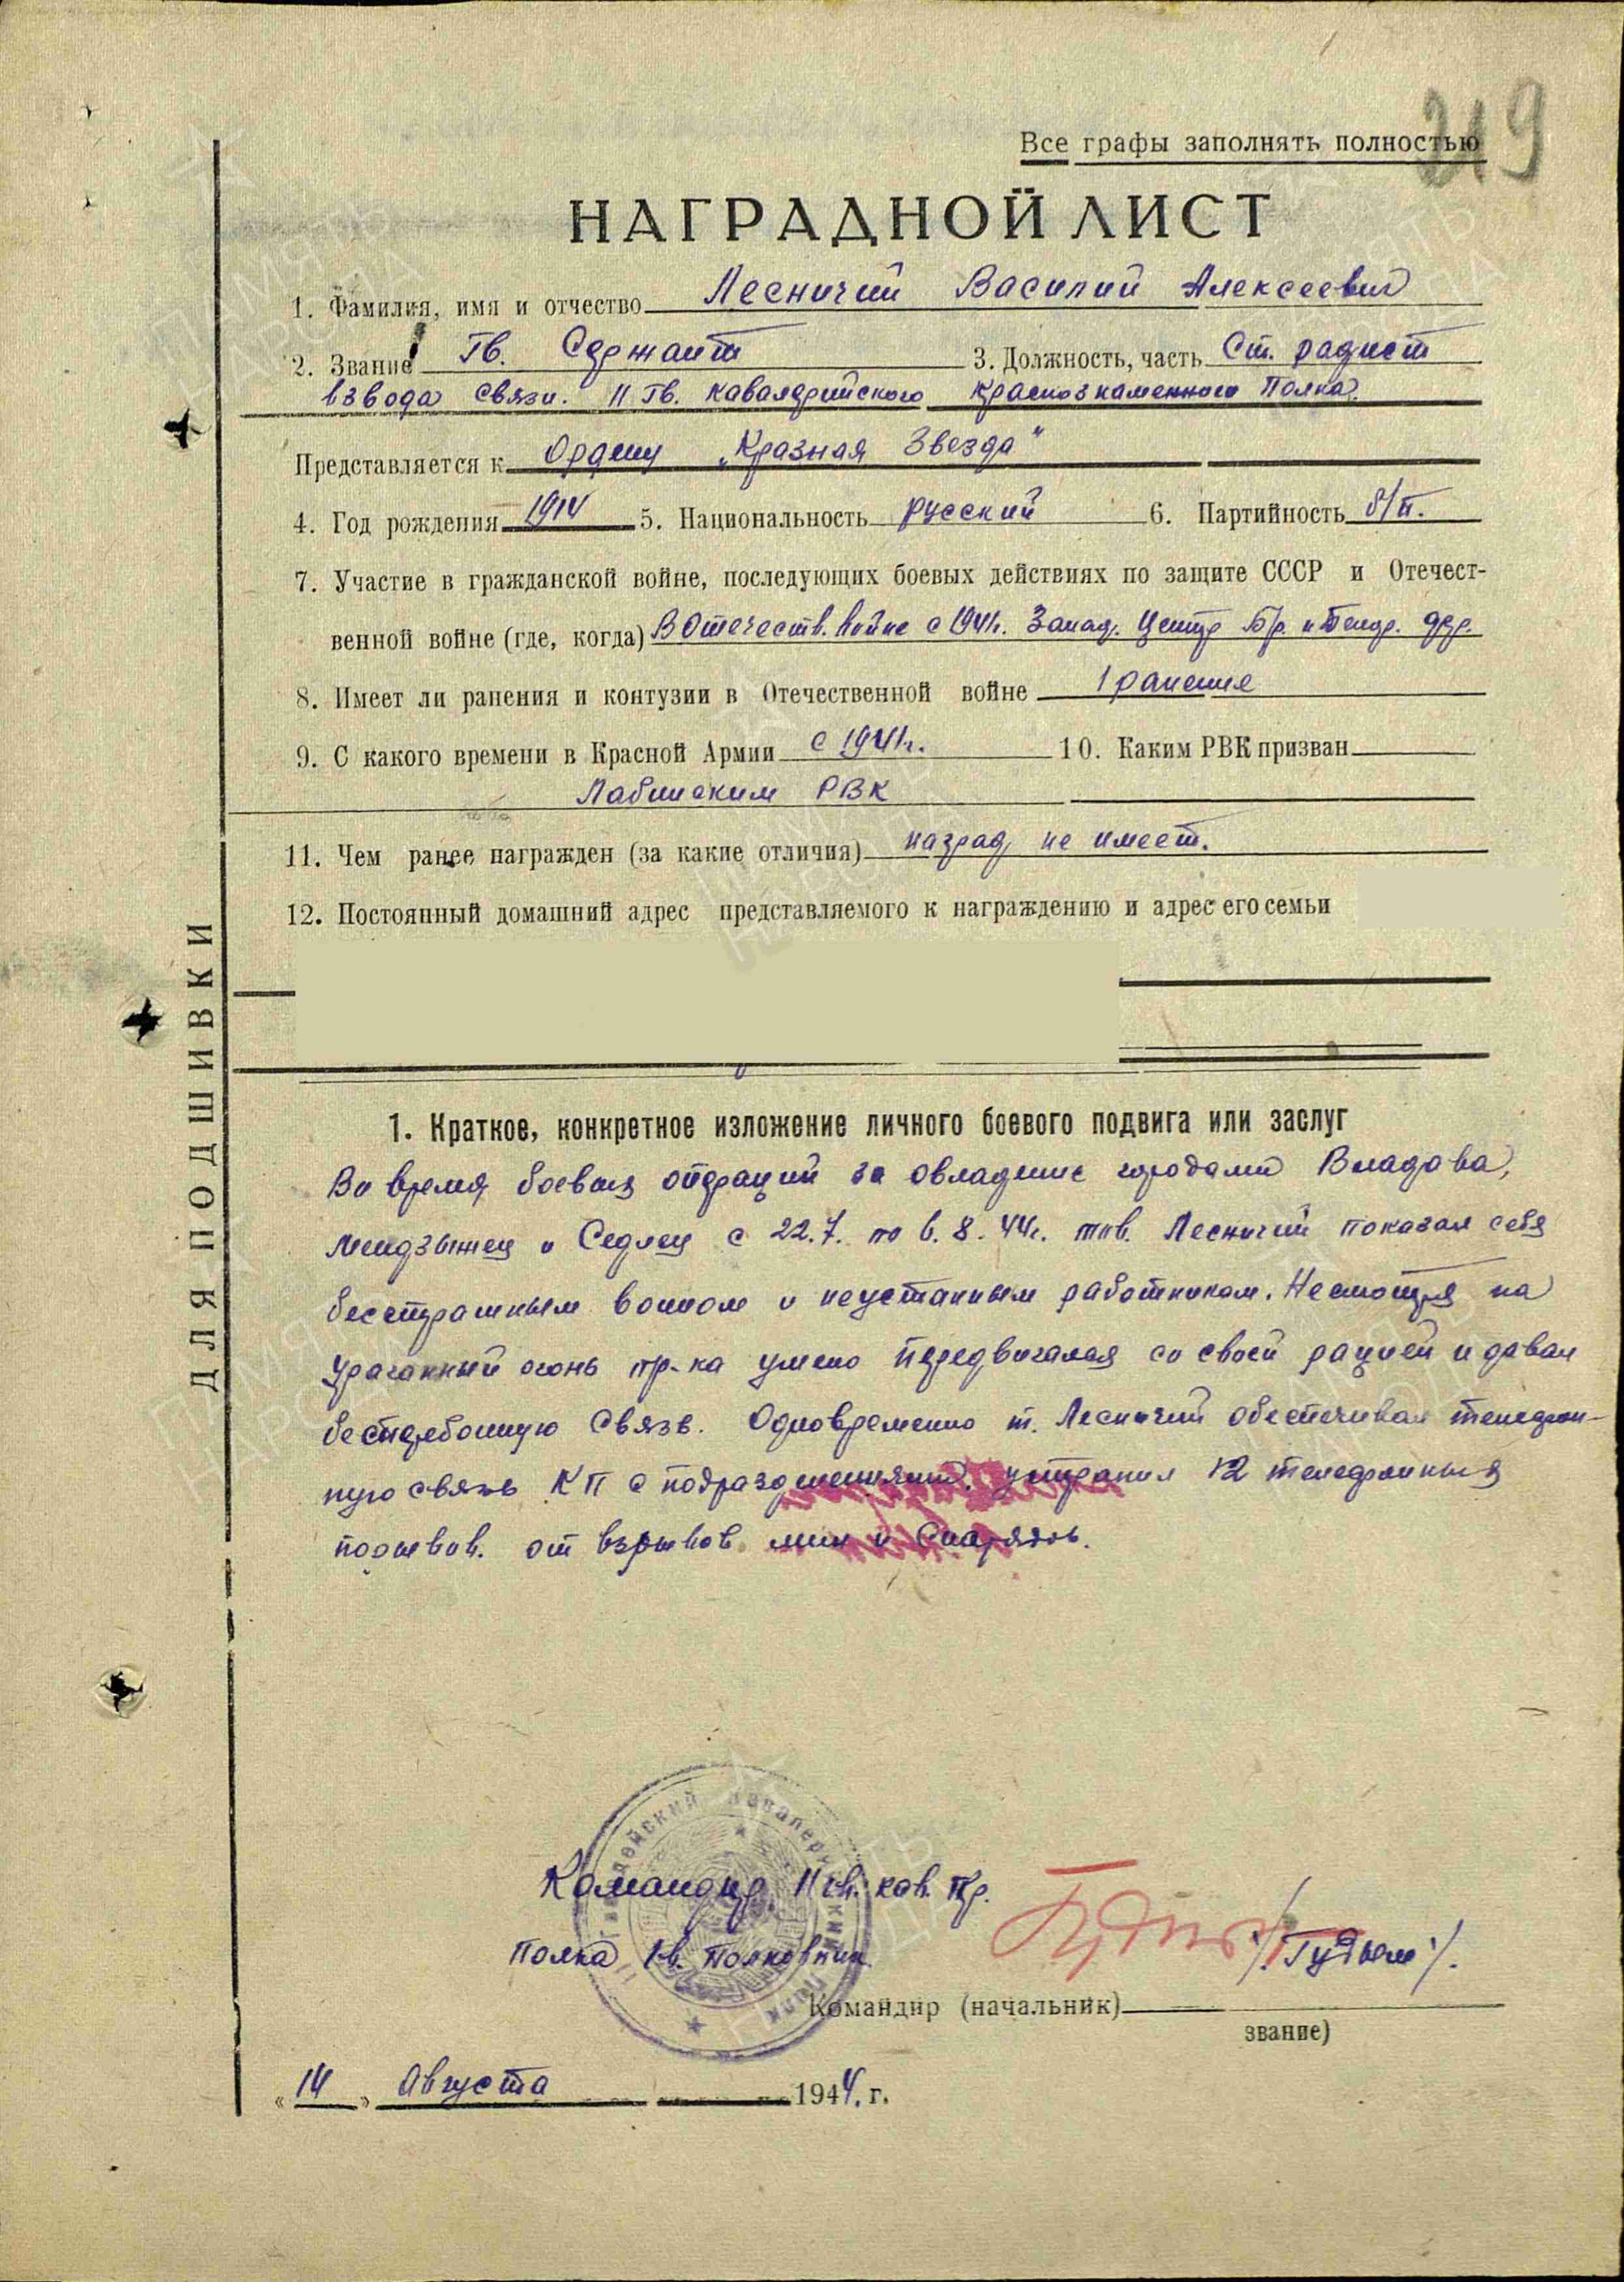 219
Все графы заполнять полностью
НАГРАДНОЙ ЛИСТ
1. Фамилия, имя и отчество Лесничий Василий Алексеевич
2. Звание Гв. Сержант 3. Должность, часть Ст. радист
взвода связи. 11 Гв. Кавалерийского Краснознаменного Полка.
Представляется к Ордену „Красная Звезда"
4. Год рождения 1914 5. Национальность русский 6. Партийность б/п.
7. Участие в гражданской войне, последующих боевых действиях по защите СССР и Отечест-
венной войне (где, когда) В Отечеств. войне с 1941г. Запад. Центр Бр. и Белор. фр.
8. Имеет ли ранения и контузии в Отечественной войне 1 ранение
9. С какого времени в Красной Армии с 1941г. 10. Каким РВК призван
Лабинским РВК
11. Чем ранее награжден (за какие отличия) наград не имеет.
12. Постоянный домашний адрес представляемого к награждению и адрес его семьи
1. Краткое, конкретное изложение личного боевого подвига или заслуг
Во время боевых операций за овладение городами Владова,
Мендзыжец и Седлец с 22.7. по 6.8.44г. тов. Лесничий показал себя
бесстрашным воином и неустанным работником. Несмотря на
ураганный огонь пр-ка умело передвигался со своей рацией и давал
бесперебойную связь. Одновременно т. Лесничий обеспечивал телефон-
ную связь КП с подразделениями. устранил 12 телефонных
порывов. от взрывов мин и снарядов.
Командир 11 гв. кав. Кр.
Полка Гв. Полковник /Гудым/.
Командир (начальник)
звание)
„14" Августа 1944. г.
ДЛЯ ПОДШИВКИ
ПАМЯТЬ НАРОДА